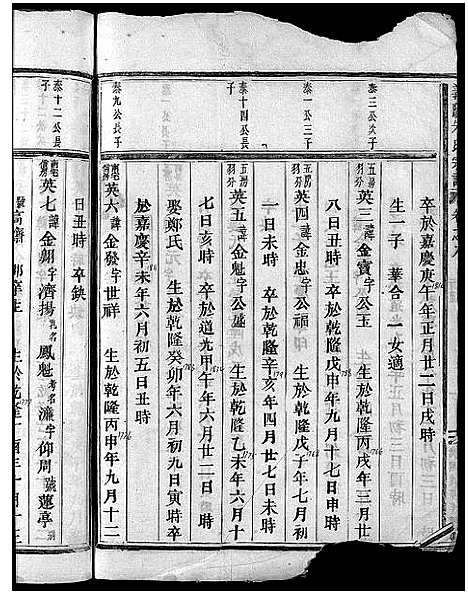 卒於嘉慶庚午年正月廿二日戌時
生一子 華合 一女適
泰三公次子
五房羽分 英三 諱金寶字公玉 生於乾隆丙戌年三月廿
1766
八日丑時 卒於乾隆戊申年九月十七日申時
1788
泰一公三子
五房羽分 英四 諱金忠字公福 生於乾隆戊子年七月初
1768
一日未時 卒於乾隆辛亥年四月廿七日未時
1791
泰十四公長子
五房羽分 英五 諱金魁字公盛 生於乾隆乙未年六月十
1775
七日亥時 卒於道光甲午年六月廿二日 時
娶鄭氏 生於乾隆癸卯年六月初九日寅時卒
1783
於嘉慶辛未年六月初五日丑時
泰九公長子
英六 諱金發字世祥 生於乾隆丙申年九月十二
1776
日丑時 卒缺
泰十二公長子
英七 諱金翔字濟揚 乳名鳳魁 考名濂 字仰周 號蓮亭